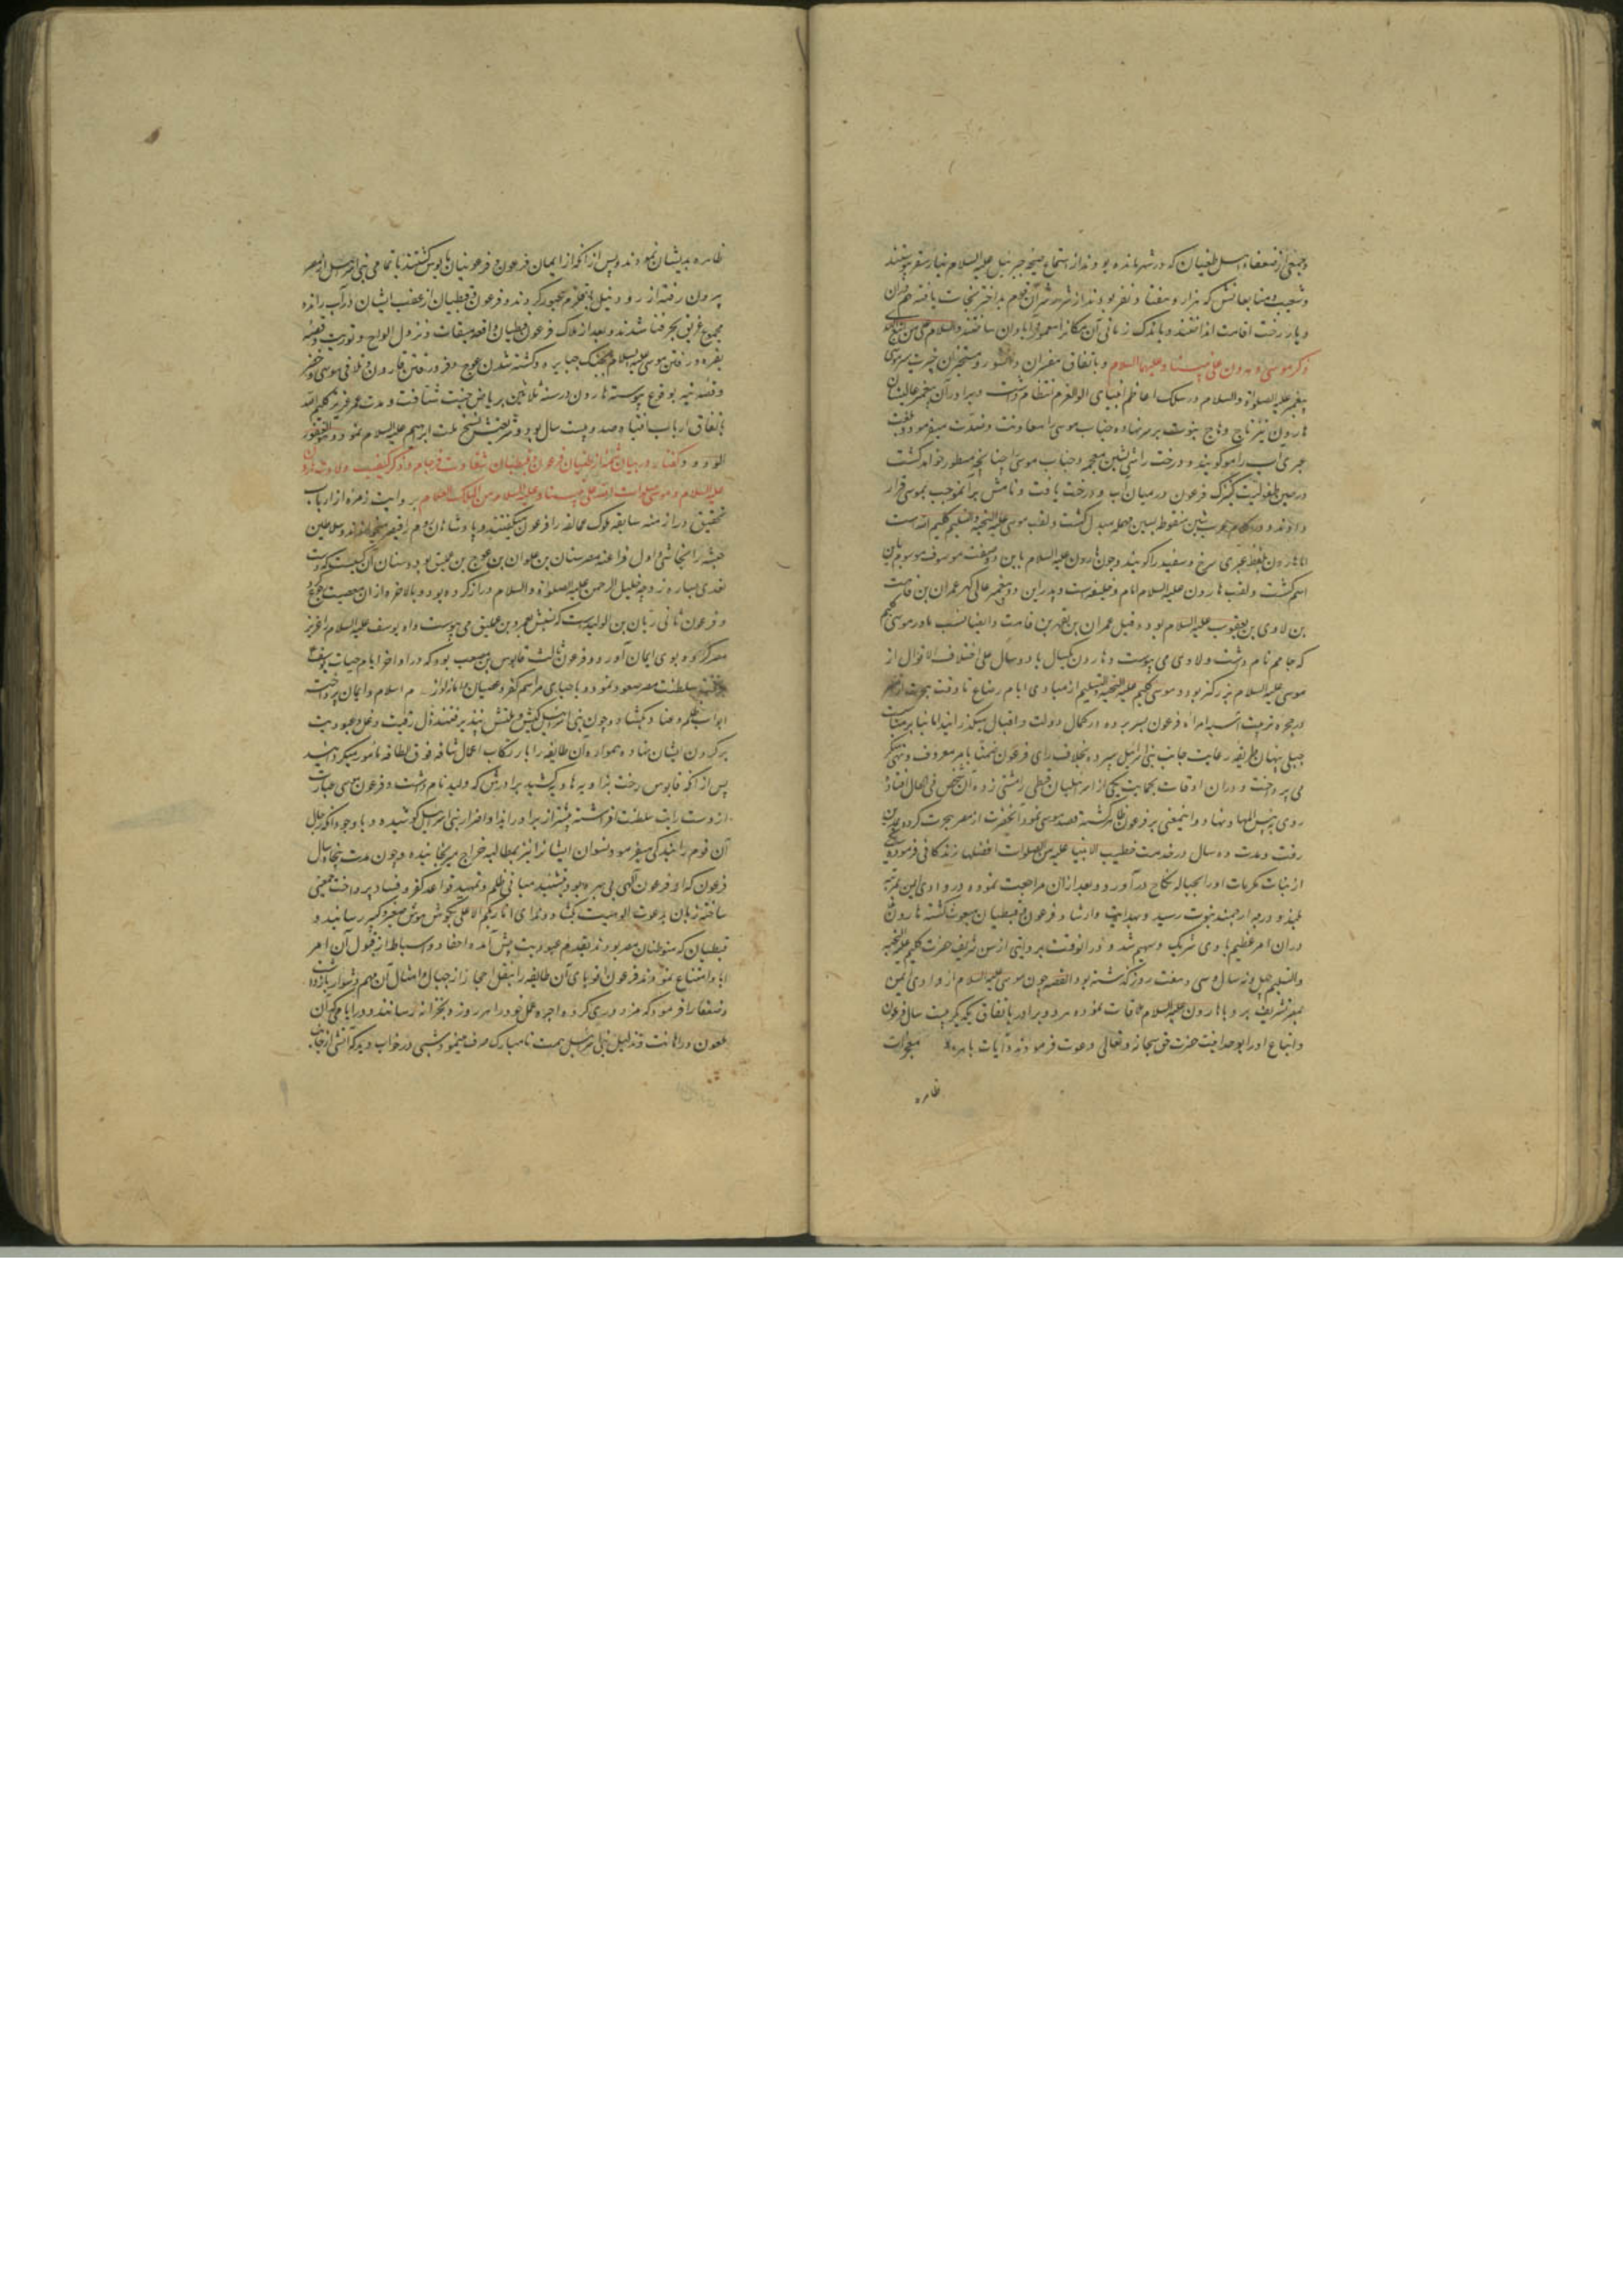 وجمعی از ضعفاء اهل طغیان که در شهر مانده بودند از استماع صیحه جبرئیل علیه السلام بنار سقر پیوستند
وشعیب و متابعانش که هزار و هفتاد نفر بودند از شر شرآن قوم بد اختر نجات یافته هم در آن
دیار رخت اقامت انداختند و باندک زمانی آن مکانرا معمور و آبادان ساختند والسلام علی من اتبع الهدی
ذکر موسی و هرون علی نبینا و علیهما السلام و باتفاق مفسران دانشور و مستخبران خبرت سیر موسی
پیغمبر علیه الصلوة والسلام در سلک اعاظم انبیای اولوالعزم انتظام داشت و برادر آن پیغمبر عالیشان
هارون نیز تاج وهاج نبوت بر سر نهاده جناب موسی را معاونت و معاضدت میفرمود و بلغت
عبری آب را مو گویند و درخت را شی بشین معجمه و جناب موسی را چنانچه مسطور خواهد گشت
در حین طفولیت کنیزک فرعون در میان آب و درخت یافت و نامش برآنموجب بموسی قرار
دادند و در کلام عرب شین منقوطه بسین مهمله مبدل گشت ولقب موسی علیه التحیة والتسلیم کلیم الله است
اما هارون بلفظ عبری سرخ و سفید را گویند وچون هارون علیه السلام باین دو صفت موصوف بود موسوم باین
اسم گشت ولقب هارون علیه السلام امام و خلیفه است و پدر این دو پیغمبر عالی گهر عمران بن قاهث
بن لاوی بن یعقوب علیه السلام بود و قیل عمران بن یصهر بن قاهث و ایضا نسب مادر موسی کلیم
که نام داشت ولاوی می پیوست و هارون بیکسال یا دو سال علی اختلاف الاقوال از
موسی علیه السلام بزرگتر بود و موسی کلیم علیه التحیة والتسلیم از مبادی ایام رضاع تا وقت هجرت از مصر
در حجره تربیت آسیه امراة فرعون بسر برده در کمال دولت و اقبال میگذرانید اما بنابر مناسبت
جبلی پنهان طریقه رعایت جانب بنی اسرائیل سپرده بخلاف رای فرعون ضمنا بامر معروف و نهی منکر
می پرداخت و در آن اوقات بحمایت یکی از اسرائیلیان قبطی را مشتی زده آن شخص فی الحال افتاد
روی به بئس المهاد نهاد و اینمعنی بر فرعون ظاهر گشته قصد موسی نمود آنحضرت از مصر هجرت کرده بمدین
رفت و مدت ده سال در خدمت خطیب الانبیا علیه من الصلوات افضلها زندگانی فرموده یکی
از بنات مکرمات او را بحباله نکاح درآورد و بعد از آن مراجعت نموده در وادی ایمن بمرتبه
بلند و درجه ارجمند نبوت رسید و بهدایت وارشاد فرعون و قبطیان مبعوث گشته هارون
در آن امر عظیم با وی شریک و سهیم شد و در آنوقت بروایتی از سن شریف حضرت کلیم علیه التحیة
والتسلیم چهل و نه سال و سی و هفت روز گذشته بود القصه چون موسی علیه السلام از وادی ایمن
بمصر تشریف برد با هارون علیه السلام ملاقات نموده هر دو برادر باتفاق یکدیگر بیست سال فرعون
و اتباع او را بوحدانیت حضرت حق سبحانه وتعالی دعوت فرمودند و آیات باهره و معجزات
ظاهره
ظاهره بدیشان نمودند و پس از آنکه از ایمان فرعون و فرعونیان مایوس گشتند با تمامی بنی اسرائیل از مصر
بیرون رفته از رود نیل یا قلزم عبور کردند و فرعون و قبطیان از عقب ایشان در آب رانده
مجموع غریق بحر فنا شدند و بعد از هلاک فرعون و قبطیان واقعه میقات و نزول الواح و توریت و قصه
بقره و رفتن موسی علیه السلام بجنگ جبابره و کشته شدن عوج و فرو رفتن قارون و تلاقی موسی و خضر
و قضیه تیه بوقوع پیوسته هارون در سنه ثلاثین بریاض جنت شتافت و مدت عمر عزیز کلیم الله
باتفاق ارباب انتباه صد و بیست سال بود و شریعتش نسخ ملت ابراهیم علیه السلام نمود وهو الغفور
الودود گفتار در بیان شمه از طغیان فرعون و قبطیان شقاوت فرجام و ذکر کیفیت ولادت هارون
علیه السلام و موسی صلوات الله علی نبینا و علیه السلام من الملک العلام بروایت زمره از ارباب
تحقیق در ازمنه سابقه ملوک عمالقه را فرعون میگفتند و پادشاهان روم را قیصر میخواندند و سلاطین
حبشه را نجاشی و اول فراعنه مصر سنان بن علوان بن عوج بن عملیق بود و سنان آن کسیست که دست
تعدی بساره زوجه خلیل الرحمن علیه الصلوة والسلام دراز کرده بود و بالاخره از آن معصیت رجوع نمود
و فرعون ثانی ریان بن الولید است که نسبش بعمرو بن عملیق می پیوست و او یوسف علیه السلام را عزیز
مصر کرد و بوی ایمان آورد و فرعون ثالث قابوس بن مصعب بود که در اواخر ایام حیات یوسف
بر تخت سلطنت مصر صعود نمود و باحیای مراسم کفر و عصیان و اسلام و ایمان پرداخت
ابواب ظلم و عناد بگشاد وچون بنی اسرائیل کیش و ملتش نپذیرفتند ذل رقیت و غل عبودیت
بر گردن ایشان نهاده همواره آن طایفه را بارتکاب اعمال شاقه فوق الطاقه مامور میگردانید
پس از آنکه قابوس رخت بزاویه هاویه کشید برادرش که ولید نام داشت و فرعون موسی عبارت
از وست رایت سلطنت افراشته بیشتر از برادر ایذا و اضرار بنی اسرائیل کوشیده و با وجود آنکه رجال
آن قوم را بندگی میفرمود نسوان ایشانرا نیز بمطالبه خراج میرنجانیده وچون مدت پنجاه سال
فرعون که از فر عون الهی بی بهره بود بتشیید مبانی ظلم و تمهید قواعد کفر و فساد پرداخت جمعی
ساخته زبان بدعوت الوهیت بگشاد و ندای انا ربکم الاعلی بگوش هوش صغیر و کبیر رسانید و
قبطیان که متوطنان مصر بودند بقدم عبودیت پیش آمده احفاد و اسباط از قبول آن امر
ابا و امتناع نمودند فرعون اقویای آن طایفه را بنقل احجار از جبال و امثال آن مهم دشوار بازداشت
و ضعفا را فرمود که مزدوری کرده اجره عمل خود را هر روز بخزانه رسانند و در ایامی که آن
ملعون در اهانت و تذلیل بنی اسرائیل همت نامبارک صرف مینمود شبی در خواب دید که آتشی از جانب